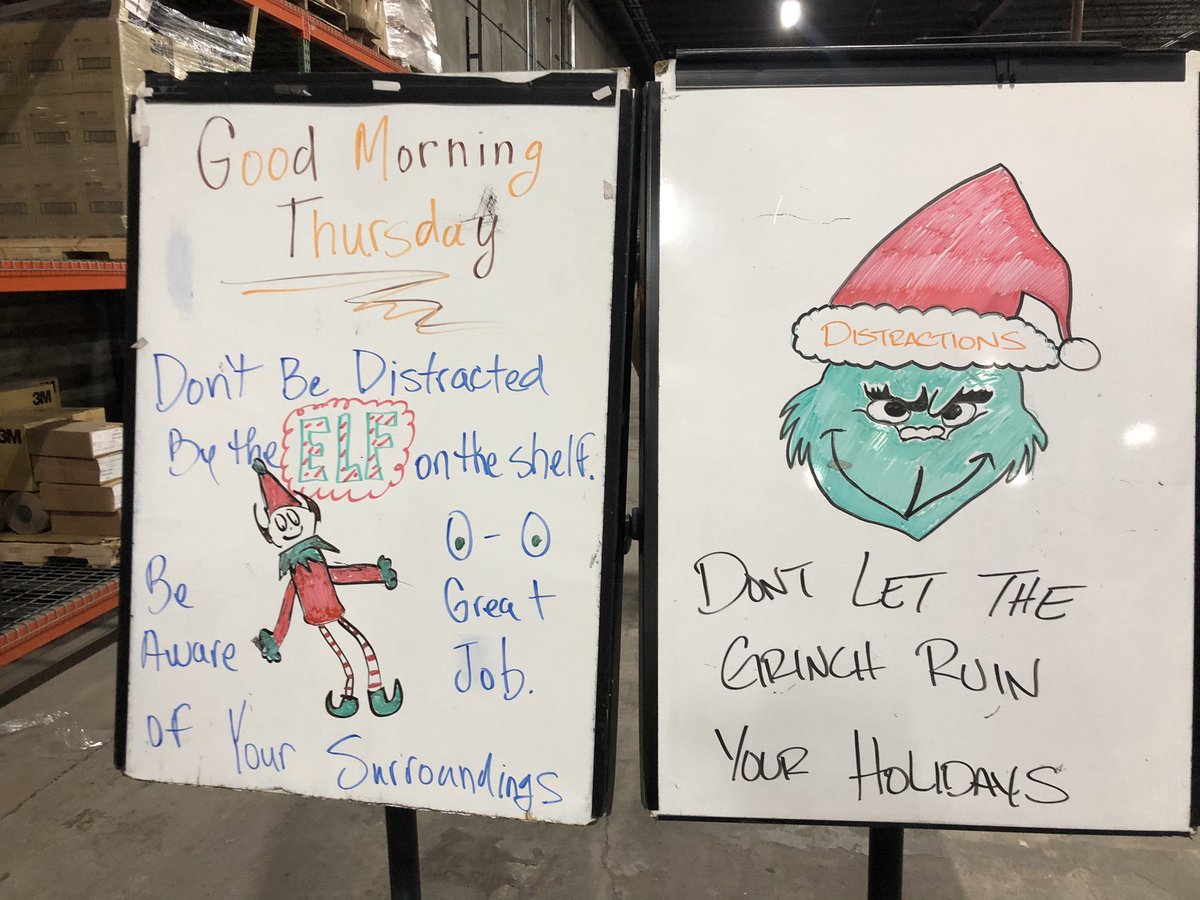 Good Morning
Thursday
Don't Be Distracted
By the ELF on the shelf.
Be
Aware
of Your Surroundings
Great
Job.
DISTRACTIONS
DONT LET THE
GRINCH RUIN
YOUR HOLIDAYS
3M
3M
3M